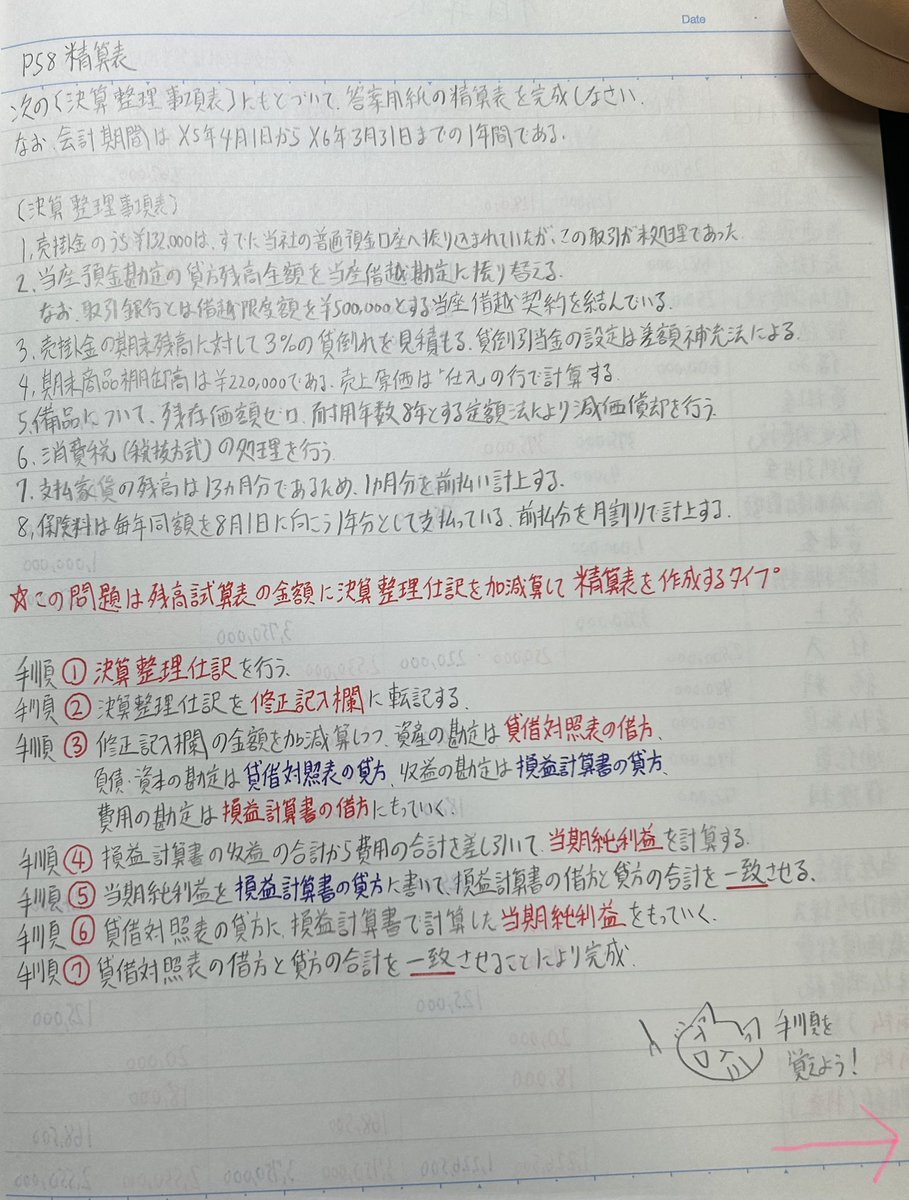 Date
P58 精算表
次の〔決算整理事項表〕にもとづいて、答案用紙の精算表を完成しなさい。
なお、会計期間はX5年4月1日からX6年3月31日までの1年間である。
〔決算整理事項表〕
1, 売掛金のうち¥132,000は、すでに当社の普通預金口座へ振り込まれていたが、この取引が未処理であった
2, 当座預金勘定の貸方残高全額を当座借越勘定に振り替える。
なお、取引銀行とは借越限度額を¥500,000とする当座借越契約を結んでいる。
3, 売掛金の期末残高に対して3%の貸倒れを見積もる。貸倒引当金の設定は差額補充法による。
4, 期末商品棚卸高は¥220,000である。売上原価は「仕入」の行で計算する。
5, 備品について、残存価額ゼロ、耐用年数8年とする定額法により減価償却を行う。
6, 消費税(税抜方式)の処理を行う
7, 支払家賃の残高は13カ月分であるため、1カ月分を前払い計上する。
8, 保険料は毎年同額を8月1日に向こう1年分として支払っている、前払分を月割りで計上する。
☆この問題は残高試算表の金額に決算整理仕訳を加減算して精算表を作成するタイプ
手順① 決算整理仕訳を行う。
手順② 決算整理仕訳を修正記入欄に転記する。
手順③ 修正記入欄の金額を加減算しつつ、資産の勘定は貸借対照表の借方、
負債・資本の勘定は貸借対照表の貸方、収益の勘定は損益計算書の貸方、
費用の勘定は損益計算書の借方にもっていく。
手順④ 損益計算書の収益の合計から費用の合計を差し引いて、当期純利益を計算する。
手順⑤ 当期純利益を損益計算書の貸方に書いて、損益計算書の借方と貸方の合計を一致させる。
手順⑥ 貸借対照表の貸方に、損益計算書で計算した当期純利益をもっていく。
手順⑦ 貸借対照表の借方と貸方の合計を一致させることにより完成。
手順を
覚えよう!